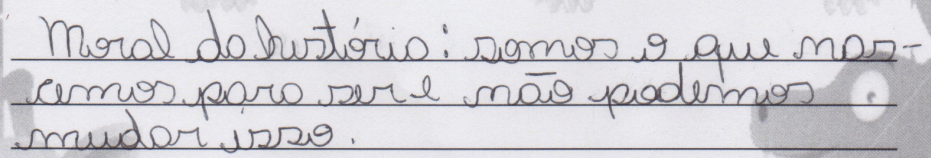 Moral da história: somos o que nas-
cemos para ser e não podemos
mudar isso.